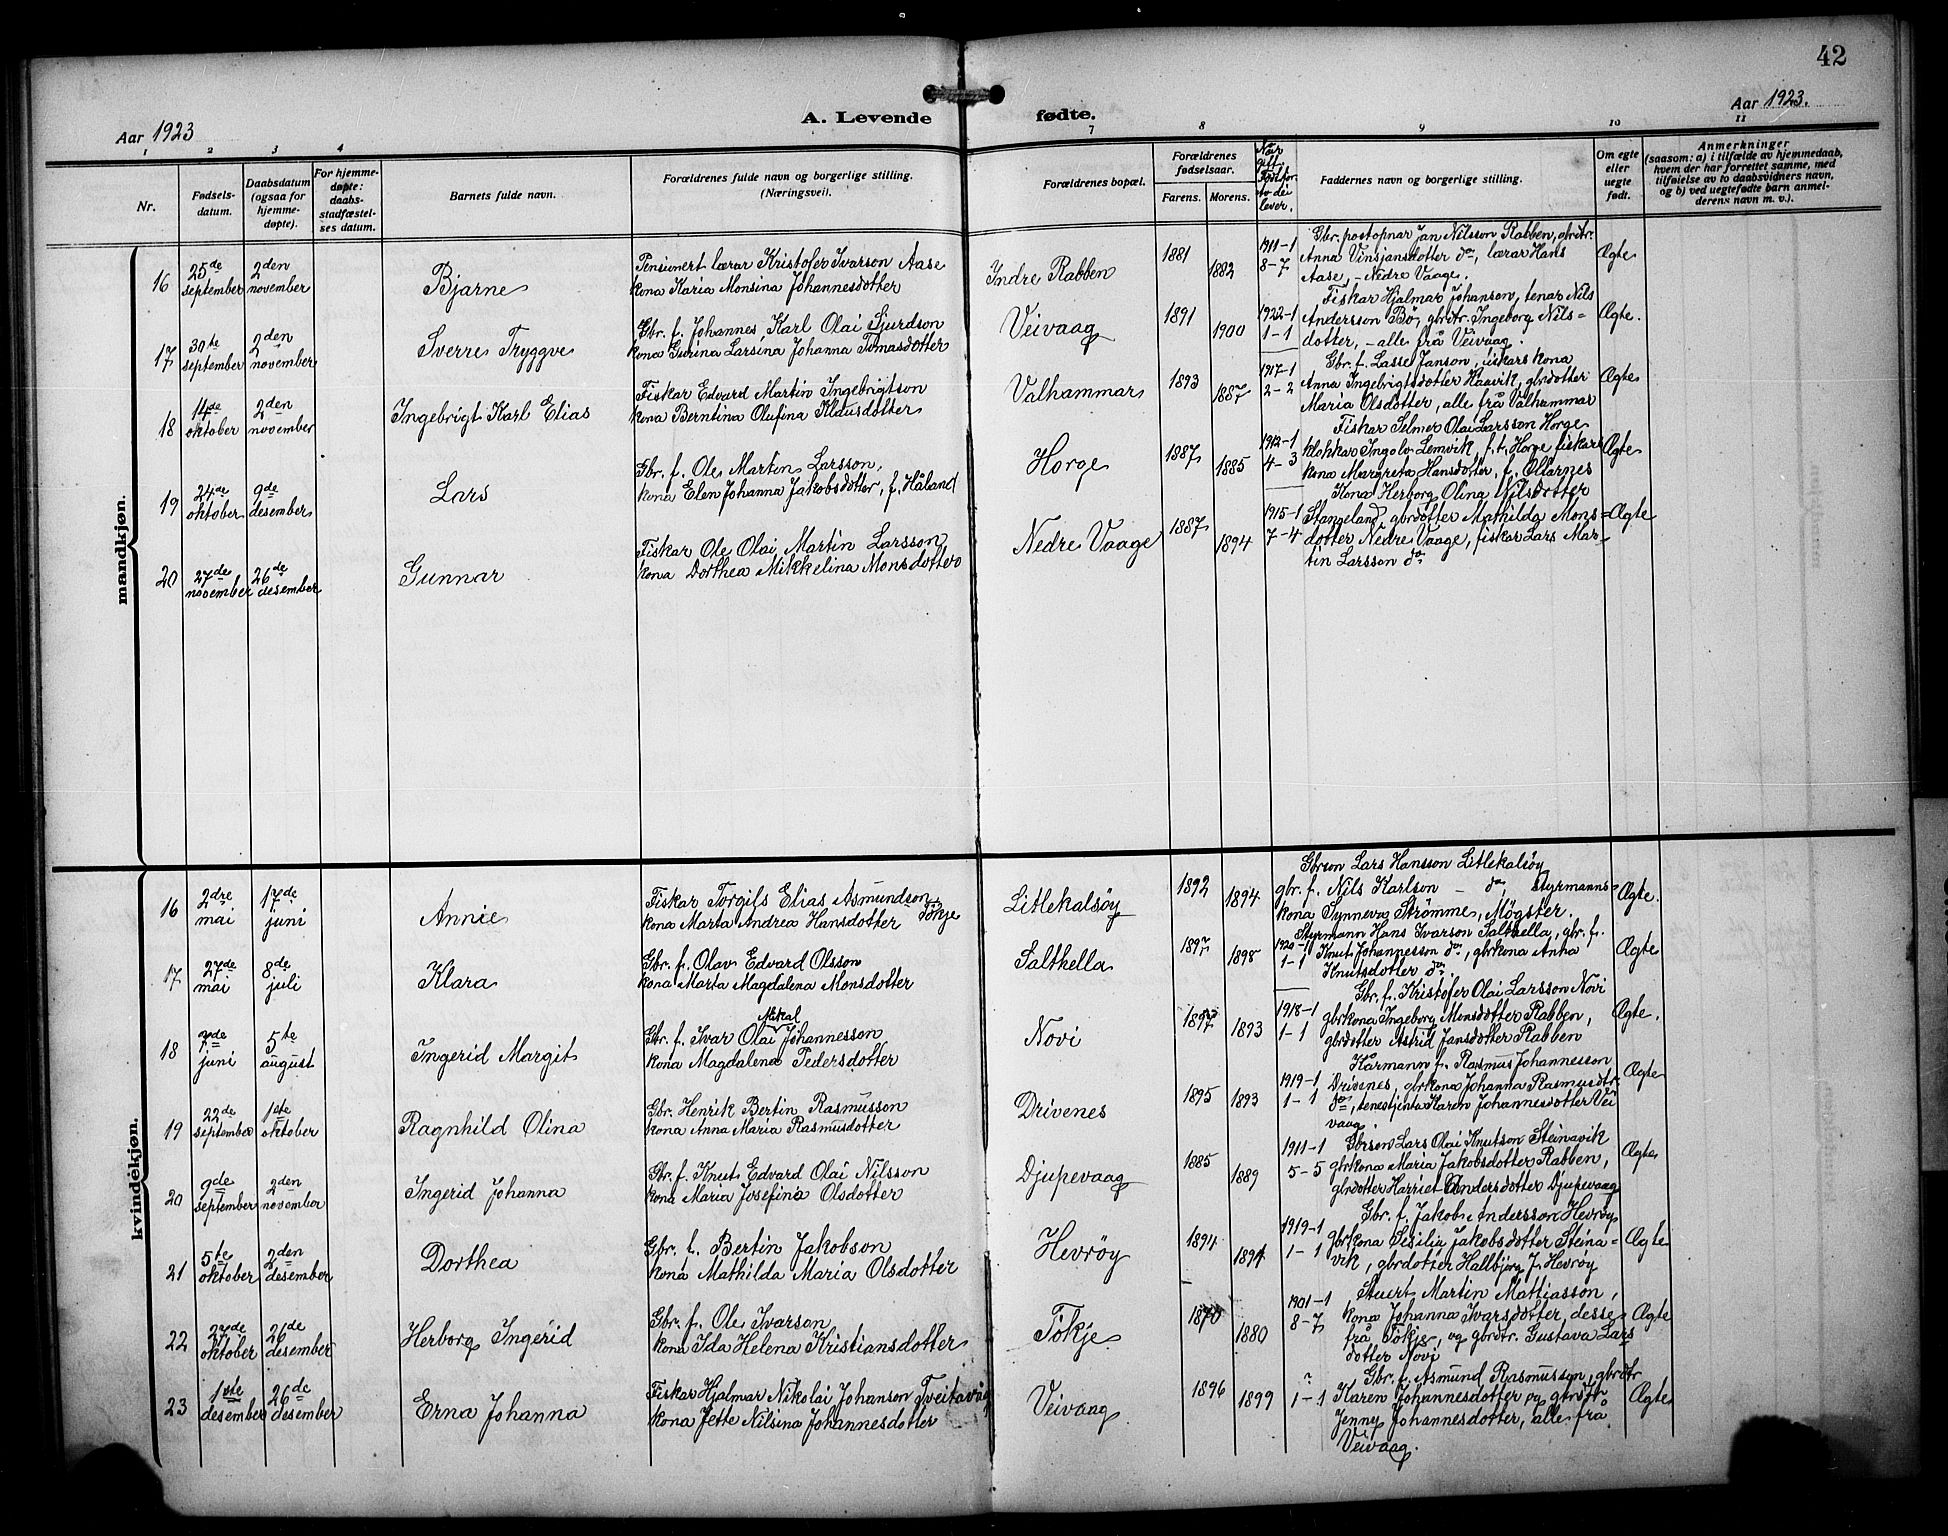 42
Aar 1923
A. Levende fødte.
Aar 1923.
1 2 3 4 7 8 9 10 11
Nr.
Fødsels-
datum.
Daabsdatum
(ogsaa for
hjemme-
døpte).
For hjemme-
døpte:
daabs-
stadfæstel-
ses datum.
Barnets fulde navn.
Forældrenes fulde navn og borgerlige stilling.
(Næringsvei).
Forældrenes bopæl.
Forældrenes
fødselsaar.
Farens. Morens.
Når
gift
lever.
Faddernes navn og borgerlige stilling.
Om egte
eller
uegte
født.
Anmerkninger
(saasom: a) i tilfælde av hjemmedaab,
hvem der har forrettet samme, med
tilføielse av to daabsvidners navn,
og b) ved uegtefødte barn anmel-
derens navn m. v.).
mandkjøn.
16
25de
september
2den
november
Bjarne
Pensionert lærar Kristofer Ivarson Aase
kona Karia Monsina Johannesdotter
Indre Rabben
1881
1882
1911-1
8-7
Gbr. postopnar Jan Nilsson Rabben, gbrdtr.
Anna Vinsjansdotter do, lærar Hans
Aase, - Nedre Vaage.
Ægte
17
30te
september
2den
november
Sverre Tryggve
Gbr. f. Johannes Karl Olai Sjurdson
kona Gurina Larsina Johanna Tomasdotter
Veivaag
1891
1900
1922-1
1-1
Fiskar Hjalmar Johanson, tenar Nils
Andersson Bø, gbrdtr. Ingeborg Nils=
dotter, - alle frå Veivaag.
Ægte.
18
14de
oktober
2den
november
Ingebrigt Karl Elias
Fiskar Edvard Martin Ingebrigtson
kona Berntina Olufina Klausdotter
Valhammar
1893
1887
1917-1
2-2
Gbr. f. Lasse Janson, fiskars kona
Anna Ingebrigtsdotter Haavik, gbrdotter
Maria Olsdotter, alle frå Valhammar
Ægte
19
24de
oktober
9de
desember
Lars
Gbr. f. Ole Marten Larsson,
kona Elen Johanna Jakobsdotter, f. Håland
Horge
1887
1885
1912-1
4-3
Fiskar Selmer Olai Larsson Horge
klokkar Ingolv Lemvik f.t. Horge fiskars
kona Margreta Hansdotter, f. Øllarnes
Ægte
20
27de
november
26de
desember
Gunnar
Fiskar Ole Olai Martin Larsson
kona Dorthea Mikkelina Monsdotter
Nedre Vaage
1887
1894
1915-1
7-4
Kona Herborg Olina Nilsdotter
Stangeland, gbrdotter Mathilda Mons=
dotter Nedre Vaage, fiskar Lars Mar-
tin Larsson do
Ægte
kvindekjøn.
16
2dre
mai
17de
juni
Annie
Fiskar Torgils Elias Asmundson
kona Marta Andrea Hansdotter Tökje
Litlekalsöy
1892
1894
Gbrson Lars Hansson Litlekalsöy
gbr. f. Nils Karlson - do, styrmanns=
kona Synneva Strömme, Møgster.
Ægte.
17
27de
mai
8de
juli
Klara
Gbr. f. Olav Edvard Olsson
kona Marta Magdalena Monsdotter
Salthella
1897
1898
1920-1
1-1
Styrmann Hans Ivarson Salthella, gbr. f.
Knut Johannesson do, gbrkona Anna
Knutsdotter do
Ægte
18
7de
juni
5te
august
Ingerid Margit
Mikal
Gbr. f. Ivar Olai Johannesson
kona Magdalena Pedersdotter
Novi
1897
1893
1918-1
1-1
Gbr. f. Kristofer Olai Larsson Novi
gbrkona Ingeborg Monsdotter Rabben,
gbrdotter Astrid Jansdotter Rabben
Ægte.
19
22de
september
1ste
oktober
Ragnhild Olina
Gbr. Henrik Bertin Rasmusson
kona Anna Maria Rasmusdotter
Drivenes
1895
1893
1919-1
1-1
Kårmann f. Rasmus Johannesson
Drivenes, gbrkona Johanna Rasmusdtr.
do, tenestjinta Karen Johannesdotter Vei
vaag.
Ægte
20
9de
september
2den
november
Ingerid Johanna
Gbr. f. Knut Edvard Olai Nilsson
kona Maria Josefina Olsdotter
Djupevaag
1885
1889
1911-1
5-5
Gbrson Lars Olai Knutson Steinavik
gbrkona Maria Jakobsdotter Rabben,
gbrdotter Harriet Andersdotter Djupevaag
Ægte
21
5te
oktober
2den
desember
Dorthea
Gbr. f. Bertin Jakobson
kona Mathilda Maria Olsdotter
Hevröy
1894
1894
1919-1
1-1
Gbr. f. Jakob Andersson Hevröy
gbrkona Sesilia Jakobsdotter Steina-
vik, gbrdotter Hallbjørg J. Hevröy
Ægte
22
27de
oktober
26de
desember
Herborg Ingerid
Gbr. f. Ole Ivarson,
kona Ida Helena Kristiansdotter
Tökje
1870
1880
1901-1
8-7
Stuert Martin Mathiasson,
kona Johanna Ivarsdotter, desse
frå Tökje, og gbrdtr. Gustava Lars
dotter Novi
Ægte
23
1ste
desember
26de
desember
Erna Johanna
Fiskar Hjalmar Nikolai Johanson Tveitavåg
kona Jette Nilsina Johannesdotter
Veivaag
1896
1899
?
1-1
Gbr. f. Asmund Rasmusson, gbrdtr
Karen Johannesdotter og gbrdtr
Jenny Johannesdotter, alle frå
Veivaag.
Ægte